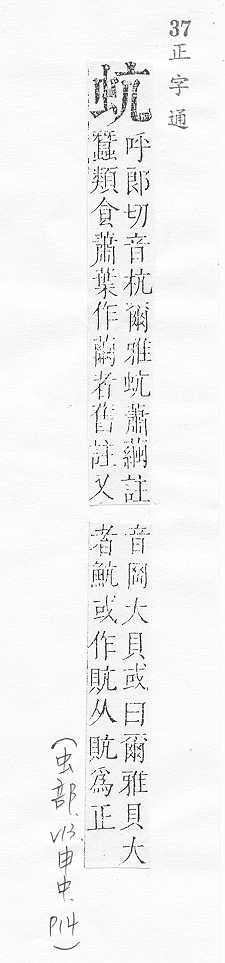 37正字通
蚢
呼郎切音杭爾雅蚢蕭繭註
蠶類食蕭葉作繭者舊註又
音岡大貝或曰爾雅貝大
者魧或作貥从貥為正
(虫部、V13.申中.P14)